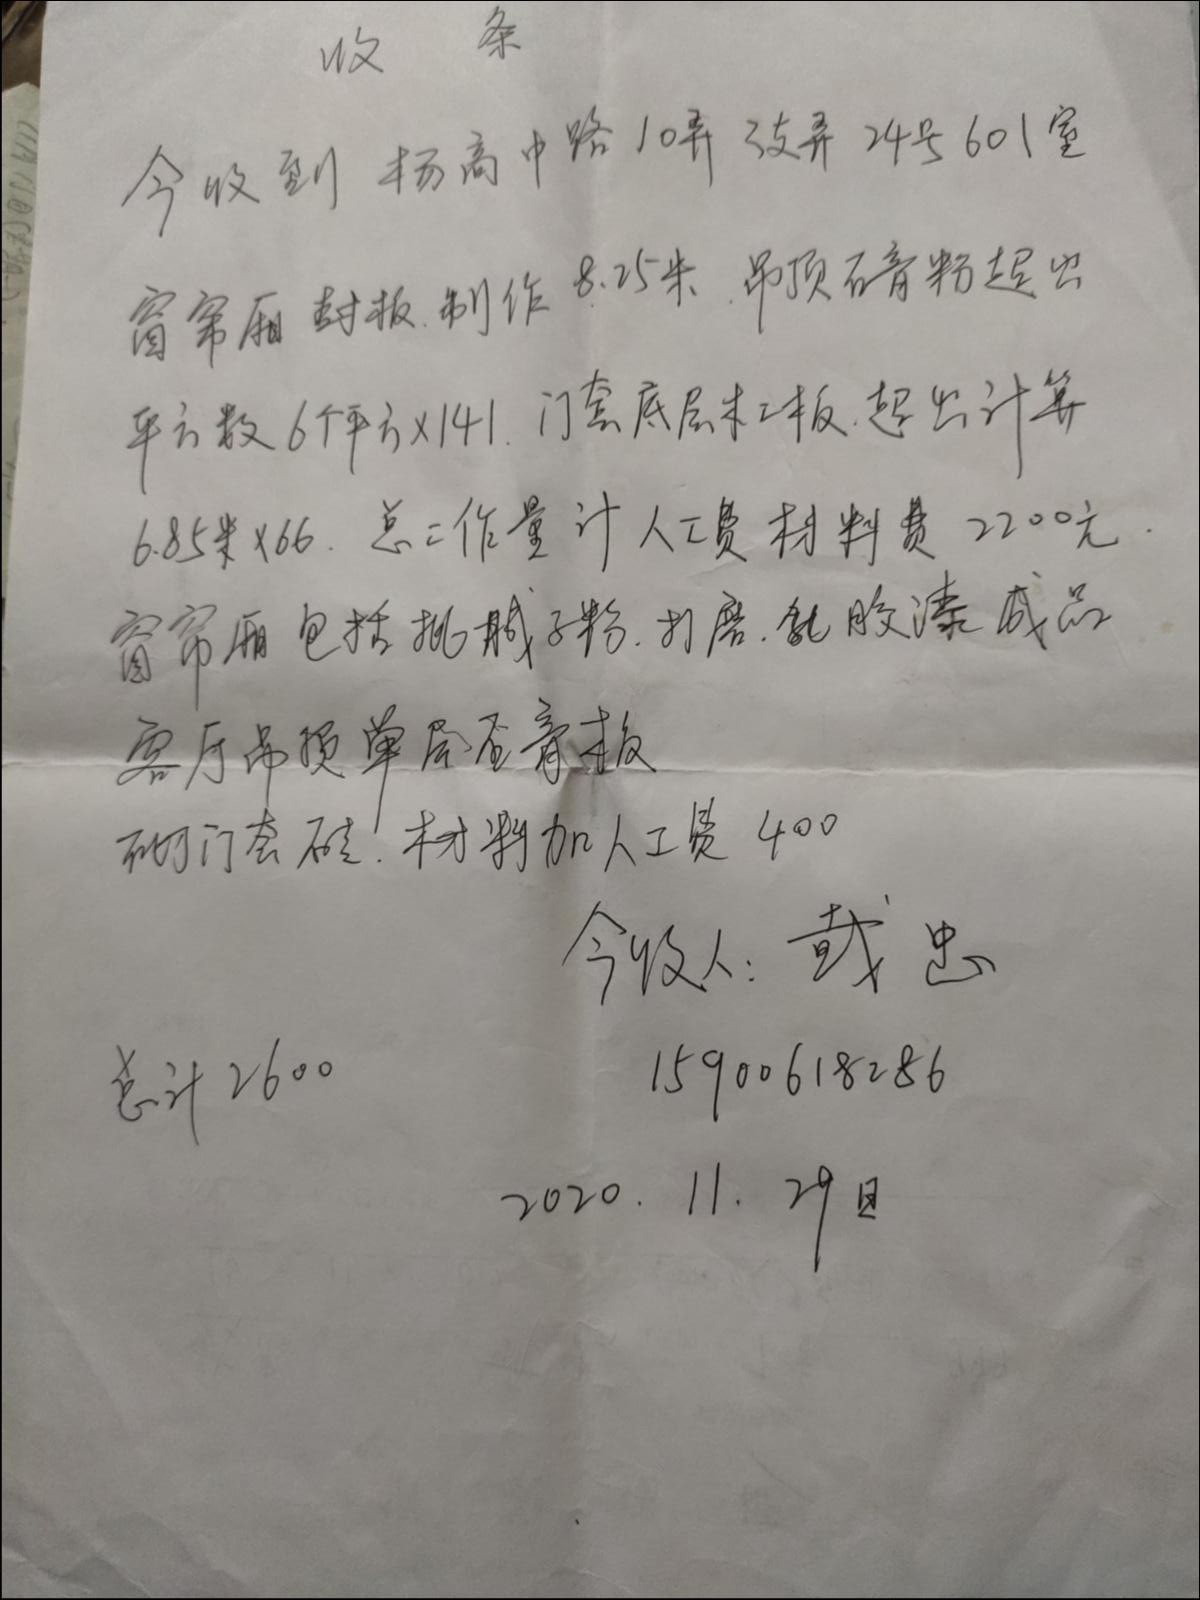 收 条
今收到 杨高中路10弄 3支弄 24号601室
窗帘厢 封板.制作 8.25米.吊顶石膏粉超出
平方数6个平方X141.门套底层木工板.超出计算
6.85米X66.总工作量计人工费材料费2200元.
窗帘厢包括批腻子粉.打磨.乳胶漆成品
客厅吊顶单层石膏板
砌门套砖.材料加人工费400
今收人:戴忠
总计2600
15900618286
2020.11.29日